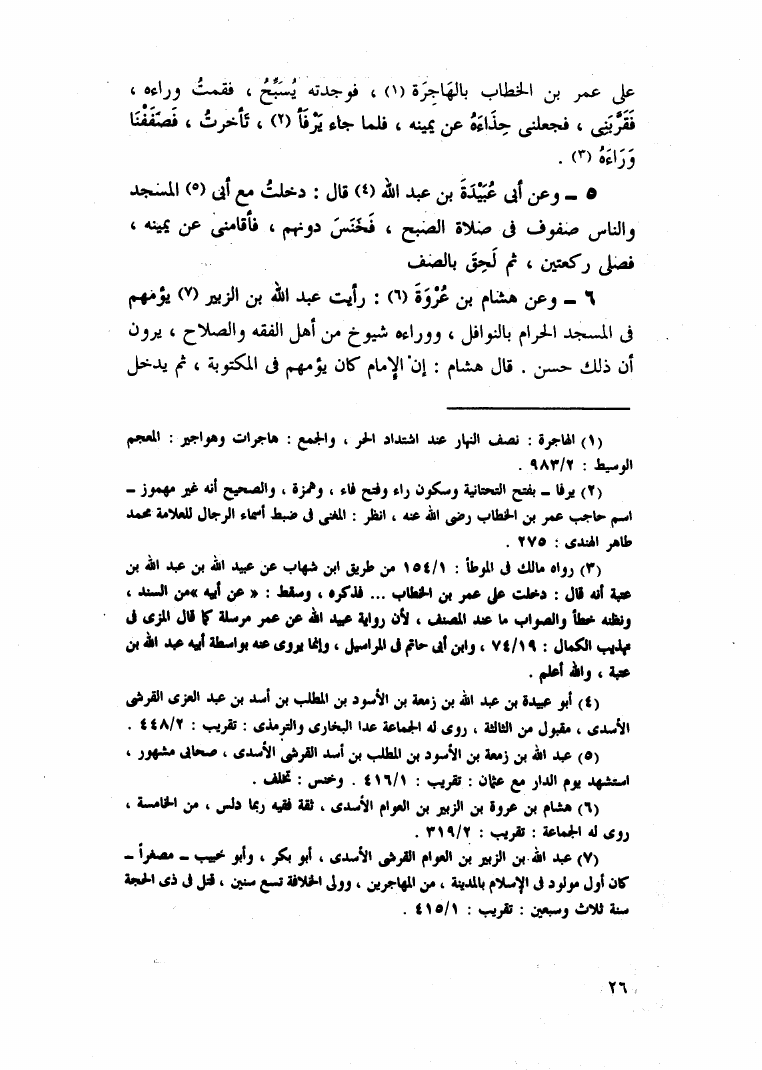 على عمر بن الخطاب بالهَاجِرَة (١) ، فوجدته يُسَبِّحُ ، فقمتُ وراءه ،
فَقَرَّبَنِى ، فجعلنى حِذَاءَهُ عن يمينه ، فلما جاء يَرْفَأْ (٢) ، تَأخرتُ ، فَصَفَفْنَا
وَرَاءَهُ (٣) .
٥ – وعن أبى عُبَيْدَةَ بن عبد الله (٤) قال : دخلتُ مع أبى (٥) المسجد
والناس صفوف فى صلاة الصبح ، فَخَنَسَ دونهم ، فأقامنى عن يمينه ،
فصلى ركعتين ، ثم لَحِقَ بالصف
٦ – وعن هشام بن عُرْوَةَ (٦) : رأيت عبد الله بن الزبير (٧) يؤمهم
فى المسجد الحرام بالنوافل ، ووراءه شيوخ من أهل الفقه والصلاح ، يرون
أن ذلك حسن . قال هشام : إن الإمام كان يؤمهم فى المكتوبة ، ثم يدخل
(١) الهاجرة : نصف النهار عند اشتداد الحر ، والجمع : هاجرات وهواجير : المعجم
الوسيط : ٩٨٣/٢ .
(٢) يرفا – بفتح التحتانية وسكون راء وفتح فاء ، وهمزة ، والصحيح أنه غير مهموز –
اسم حاجب عمر بن الخطاب رضى الله عنه ، انظر : المغنى فى ضبط أسماء الرجال للعلامة محمد
طاهر الهندى : ٢٧٥ .
(٣) رواه مالك فى الموطأ : ١٥٤/١ من طريق ابن شهاب عن عبيد الله بن عبد الله بن
عتبة أنه قال : دخلت على عمر بن الخطاب ... فذكره ، وسقط : « عن أبيه »من السند ،
ونظنه خطأ والصواب ما عند المصنف ، لأن رواية عبيد الله عن عمر مرسلة كما قال المزى فى
تهذيب الكمال : ٧٤/١٩ ، وابن أبى حاتم فى المراسيل ، وإنما يروى عنه بواسطة أبيه عبد الله بن
عتبة ، والله أعلم .
(٤) أبو عبيدة بن عبد الله بن زمعة بن الأسود بن المطلب بن أسد بن عبد العزى القرشى
الأسدى ، مقبول من الثالثة ، روى له الجماعة عدا البخارى والترمذى : تقريب : ٤٤٨/٢ .
(٥) عبد الله بن زمعة بن الأسود بن المطلب بن أسد القرشى الأسدى ، صحابى مشهور ،
استشهد يوم الدار مع عثمان : تقريب : ٤١٦/١ . وخنس : تخلف .
(٦) هشام بن عروة بن الزبير بن العوام الأسدى ، ثقة فقيه ربما دلس ، من الخامسة ،
روى له الجماعة : تقريب : ٣١٩/٢ .
(٧) عبد الله بن الزبير بن العوام القرشى الأسدى ، أبو بكر ، وأبو خبيب – مصغراً –
كان أول مولود فى الإسلام بالمدينة ، من المهاجرين ، وولى الخلافة تسع سنين ، قتل فى ذى الحجة
سنة ثلاث وسبعين : تقريب : ٤١٥/١ .
٢٦